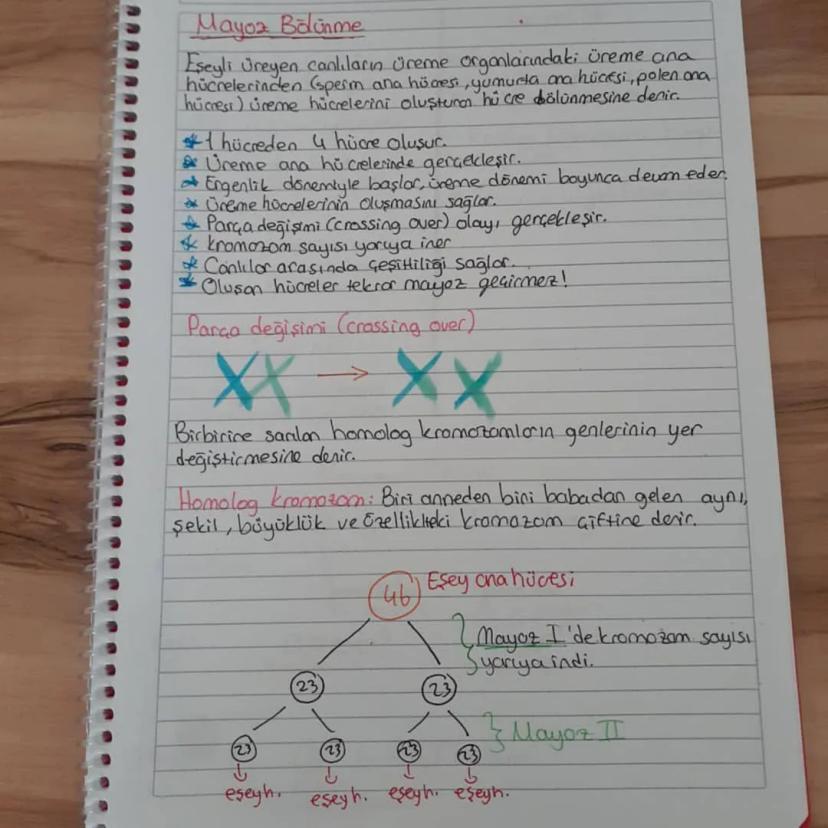 Mayoz Bölünme
Eşeyli üreyen canlıların üreme organlarındaki üreme ana
hücrelerinden (sperm ana hücresi, yumurta ana hücresi, polen ana
hücresi) üreme hücrelerini oluşturan hücre bölünmesine denir.
* 1 hücreden 4 hücre oluşur.
* Üreme ana hücrelerinde gerçekleşir.
* Ergenlik dönemiyle başlar, üreme dönemi boyunca devam eder.
* Üreme hücrelerinin oluşmasını sağlar.
* Parça değişimi (crossing over) olayı gerçekleşir.
* Kromozom sayısı yarıya iner
* Canlılar arasında çeşitliliği sağlar.
* Oluşan hücreler tekrar mayoz geçirmez!
Parça değişimi (crossing over)
Birbirine sarılan homolog kromozomların genlerinin yer
değiştirmesine denir.
Homolog kromozom: Biri anneden biri babadan gelen aynı,
şekil, büyüklük ve özellikteki kromozom çiftine denir.
46 Eşey ana hücresi
Mayoz I'de kromozom sayısı
yarıya indi.
23 23
23 23 23 23 Mayoz II
eşey h. eşey h. eşey h. eşey h.